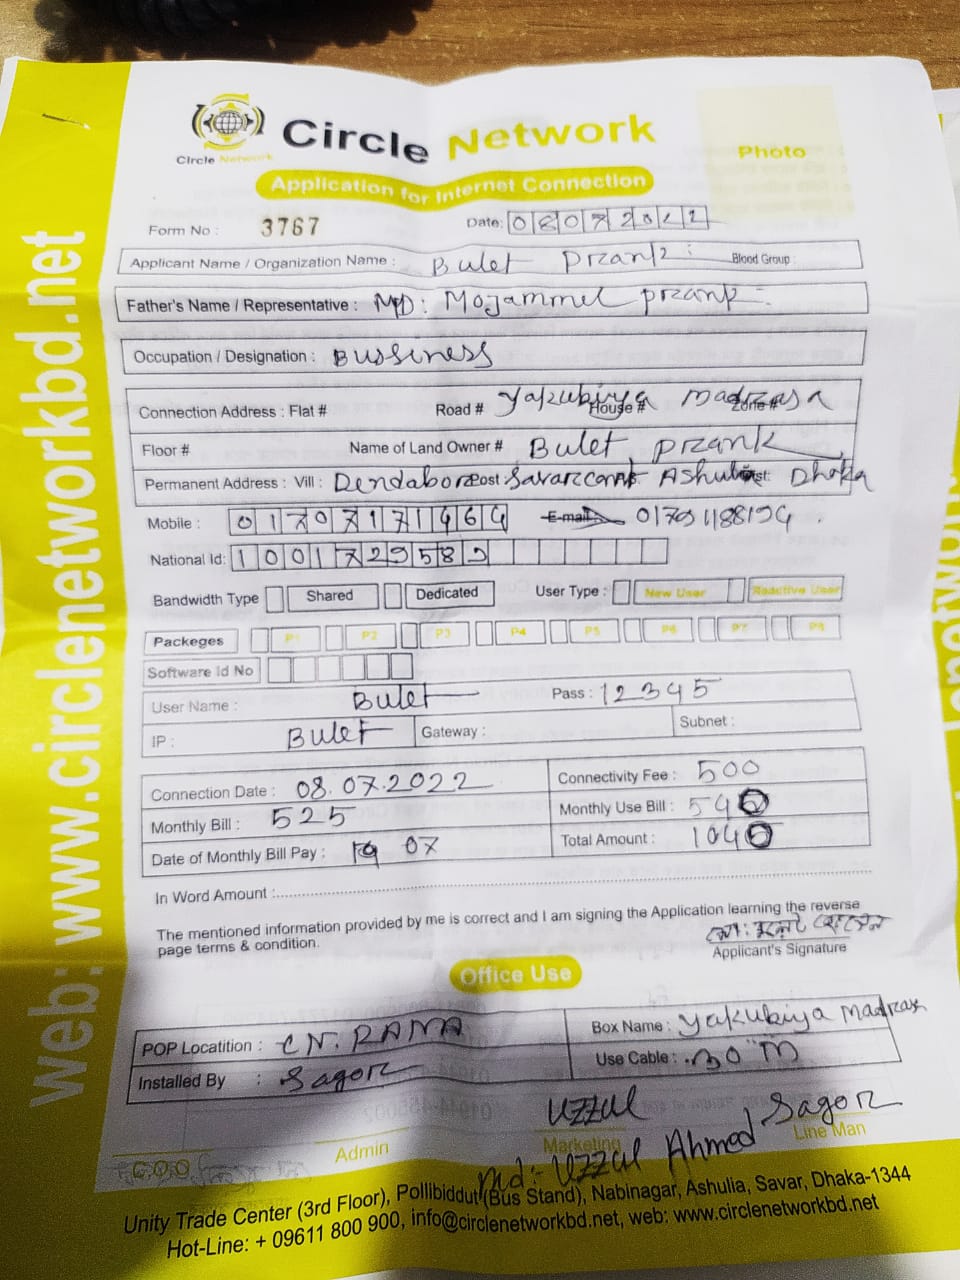 Circle Network
Circle Network
Photo
Application for Internet Connection
Form No : 3767
Date: 08072022
Applicant Name / Organization Name : Bulet Prank : Blood Group :
Father's Name / Representative : MD: Mojammel prank
Occupation / Designation : Bussiness
Connection Address : Flat # Road # Yakubiya House # Madrasa Zone #
Floor # Name of Land Owner # Bulet prank
Permanent Address : Vill : Dendabor Post Savarcantt Ashulia Dist: Dhaka
Mobile : 01707171464 E-mail 01791188194
National Id: 1001729589
Bandwidth Type Shared Dedicated User Type : New User Reactive User
Packeges P1 P2 P3 P4 P5 P6 P7 P8
Software Id No
User Name : Bulet Pass : 12345
IP : Bulet Gateway : Subnet :
Connection Date : 08.07.2022 Connectivity Fee : 500
Monthly Bill : 525 Monthly Use Bill : 540
Date of Monthly Bill Pay : 07 Total Amount : 1040
In Word Amount :
The mentioned information provided by me is correct and I am signing the Application learning the reverse
page terms & condition.
Applicant's Signature
Office Use
POP Locatition : CN. RANA Box Name : Yakubiya Madrasa
Installed By : Sagor Use Cable : 30 m
Uzzul Sagor
C.O.O Admin Marketing Line Man
Md: Uzzul Ahmed
Unity Trade Center (3rd Floor), Pollibiddut (Bus Stand), Nabinagar, Ashulia, Savar, Dhaka-1344
Hot-Line: + 09611 800 900, info@circlenetworkbd.net, web: www.circlenetworkbd.net
web: www.circlenetworkbd.net